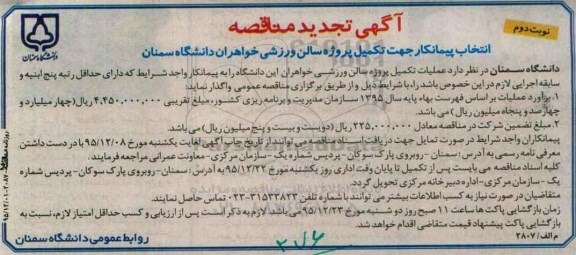 آگهی تجدید مناقصه
نوبت دوم
دانشگاه سمنان
انتخاب پیمانکار جهت تکمیل پروژه سالن ورزشی خواهران دانشگاه سمنان
دانشگاه سمنان در نظر دارد عملیات تکمیل پروژه سالن ورزشی خواهران این دانشگاه را به پیمانکار واجد شرایط که دارای حداقل رتبه پنج ابنیه و
سابقه اجرایی لازم در این خصوص باشد، با شرایط ذیل و از طریق برگزاری مناقصه عمومی واگذار نماید:
۱. برآورد عملیات بر اساس فهرست بهاء پایه سال ۱۳۹۵ سازمان مدیریت و برنامه ریزی کشور، مبلغ تقریبی ۴،۴۵۰،۰۰۰،۰۰۰ ریال (چهار میلیارد و
چهارصد و پنجاه میلیون ریال) می باشد.
۲. مبلغ تضمین شرکت در مناقصه معادل ۲۲۵،۰۰۰،۰۰۰ ریال (دویست و بیست و پنج میلیون ریال) می باشد.
پیمانکاران واجد شرایط در صورت تمایل جهت دریافت اسناد مناقصه می توانند از تاریخ چاپ آگهی لغایت یکشنبه مورخ ۹۵/۱۲/۰۸ با در دست داشتن
معرفی نامه رسمی به آدرس: سمنان - روبروی پارک سوکان - پردیس شماره یک - سازمان مرکزی - معاونت عمرانی مراجعه فرمایند.
کلیه اسناد مناقصه می بایست پس از تکمیل تا پایان وقت اداری روز یکشنبه مورخ ۹۵/۱۲/۲۲ به آدرس: سمنان- روبروی پارک سوکان- پردیس شماره
یک - سازمان مرکزی- اداره دبیرخانه مرکزی تحویل گردد.
متقاضیان در صورت نیاز به کسب اطلاعات بیشتر می توانند با شماره تلفن ۳۱۵۳۳۸۲۳-۰۲۳ تماس حاصل نمایند.
زمان بازگشایی پاکت ها ساعت ۱۱ صبح روز دو شنبه مورخ ۹۵/۱۲/۲۳ می باشد. لازم به ذکر است پس از ارزیابی و کسب حداقل امتیاز لازم، نسبت به
بازگشایی پاکت پیشنهاد قیمت متقاضی اقدام خواهد شد.
م الف/ ۲۸۰۷
روابط عمومی دانشگاه سمنان